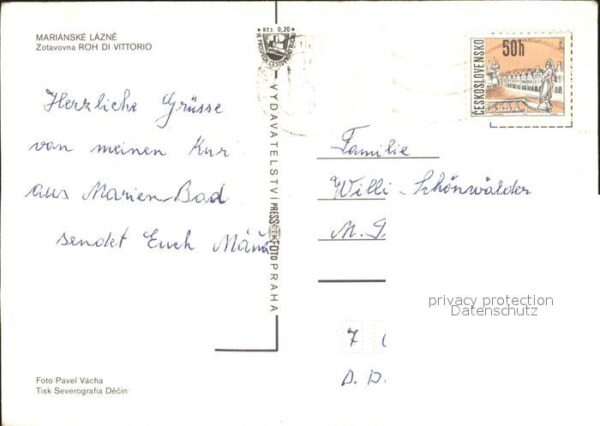 MARIÁNSKÉ LÁZNĚ
Zotavovna ROH DI VITTORIO
Kčs 0,20
ČESKOSLOVENSKO
50h
Herzliche Grüsse
von meinen Kur
aus Marien-Bad
sendet Euch
VYDAVATELSTVÍ PRESSFOTO PRAHA
Familie
Willi Schönwälder
M.
7
D. D.
privacy protection
Datenschutz
Foto Pavel Vácha
Tisk Severografia Děčín